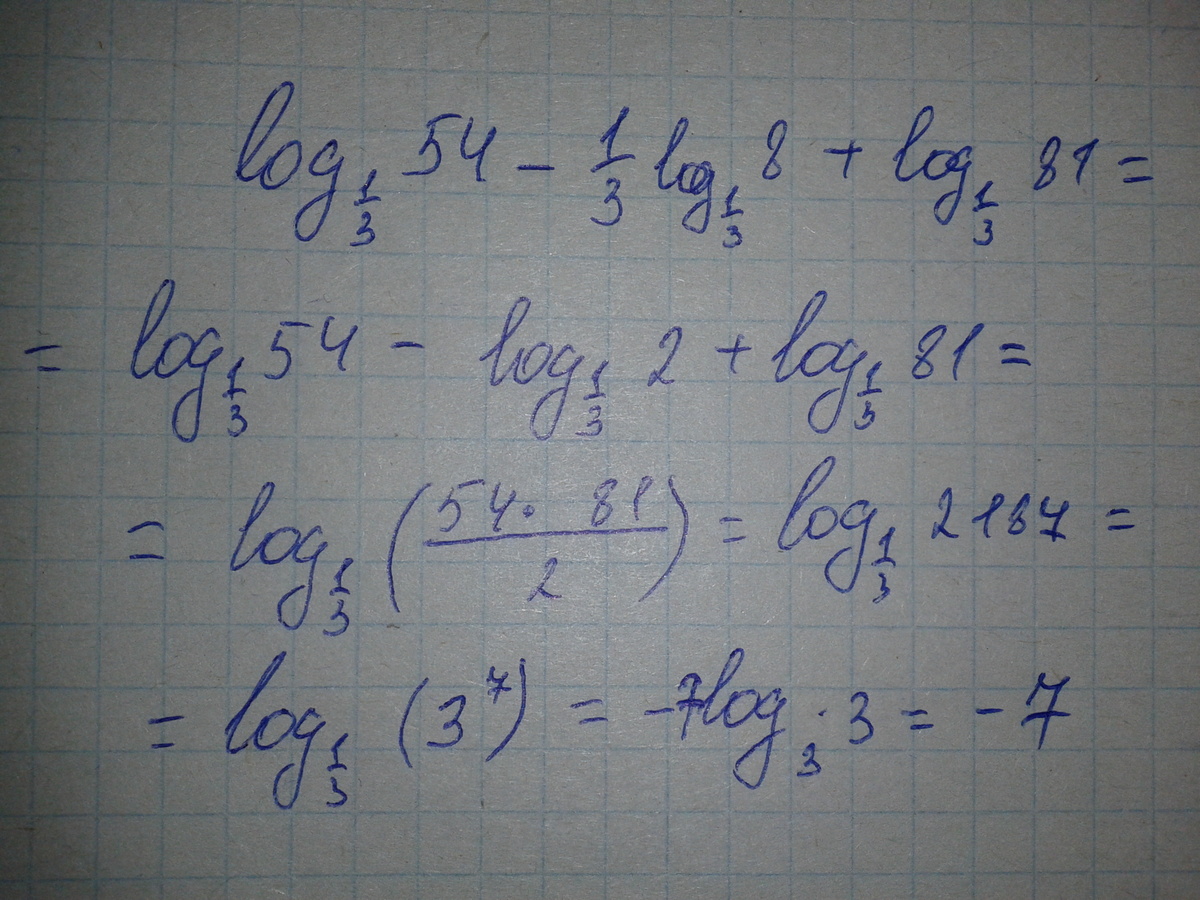 log_{1/3} 54 - 1/3 log_{1/3} 8 + log_{1/3} 81 =
= log_{1/3} 54 - log_{1/3} 2 + log_{1/3} 81 =
= log_{1/3} (54 · 81 / 2) = log_{1/3} 2187 =
= log_{1/3} (3^7) = -7 log_3 · 3 = -7